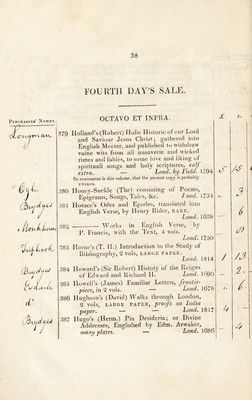 38
FOURTH DAY'S SALE.
PURCHASERS' NAMES.
OCTAVO ET INFRA.
£ s.
Longman
379 Holland's (Robert) Holie Historie of our Lord
and Saviour Jesus Christ; gathered into
English Meeter, and published to withdraw
vaine wits from all unsaverie and wicked
rimes and fables, to some love and liking of
spirituall songs and holy scriptures, calf
extra. — Lond. by Field. 1594
5 15
So uncommon is this volume, that the present copy is probably
unique.
380 Honey-Suckle (The) consisting of Poems,
Epigrams, Songs, Tales, &c. Lond. 1734
- 3
Brydges
381 Horace's Odes and Epodes, translated into
English Verse, by Henry Rider, RARE.
Lond. 1638
- 6
382 ——— Works in English Verse, by
P. Francis, with the Text, 4 vols.
Lond. 1750
- 8
Triphook
383 Horne's (T. H.) Introduction to the Study of
Bibliography, 2 vols, LARGE PAPER.
Lond. 1814
1 13
Brydges
384 Howard's (Sir Robert) History of the Reigns
of Edward and Richard II. Lond. 1690
- 2
385 Howell's (James) Familiar Letters, frontis-
piece, in 2 vols. — Lond. 1678
- 6
do
386 Hughson's (David) Walks through London,
2 vols, LARGE PAPER, proofs on India
paper. — — Lond. 1817
4 -
Brydges
387 Hugo's (Herm.) Pia Desideria; or Divine
Addresses, Englished by Edm. Arwaker,
many plates. — Lond. 1686